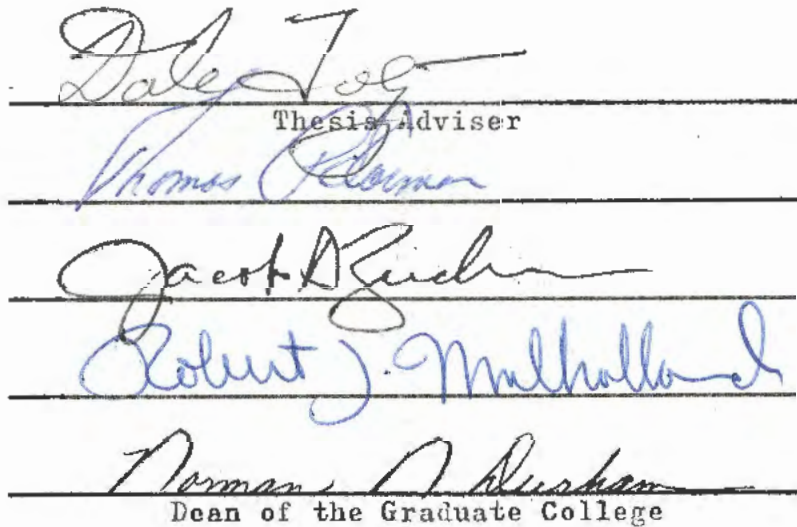 Dale
Thesis Adviser
Thomas
Jacob D
Robert J. Mulholland
Norman N Durham
Dean of the Graduate College